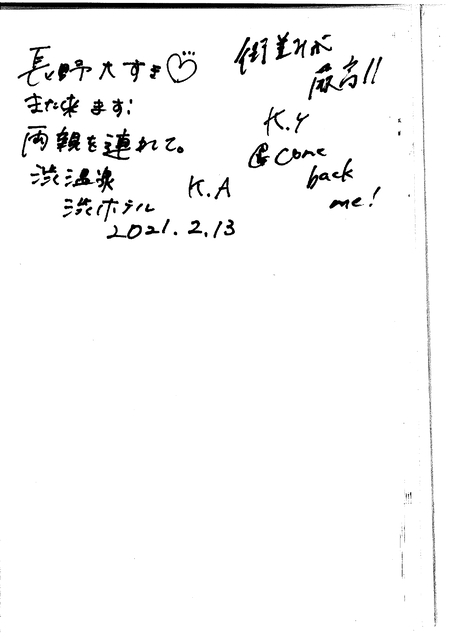 長野大すき♡
また来ます!
両親を連れて。
渋温泉
渋ホテル
K.A
2021.2.13
街並みが
最高!!
K.Y
come
back
me!